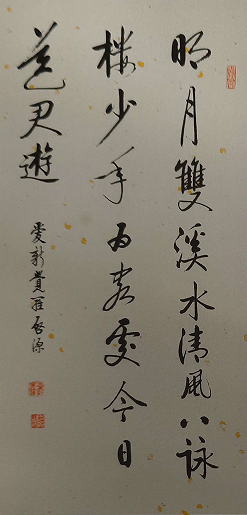 明月雙溪水清風八詠
樓少年為客處今日
送君遊
愛新覺羅啟源